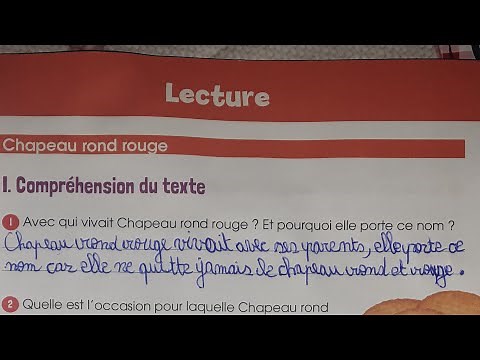 Lecture
Chapeau rond rouge
I. Compréhension du texte
1 Avec qui vivait Chapeau rond rouge ? Et pourquoi elle porte ce nom ?
Chapeau rond rouge vivait avec ses parents, elle porte ce
nom car elle ne quitte jamais le chapeau rond et rouge.
2 Quelle est l'occasion pour laquelle Chapeau rond